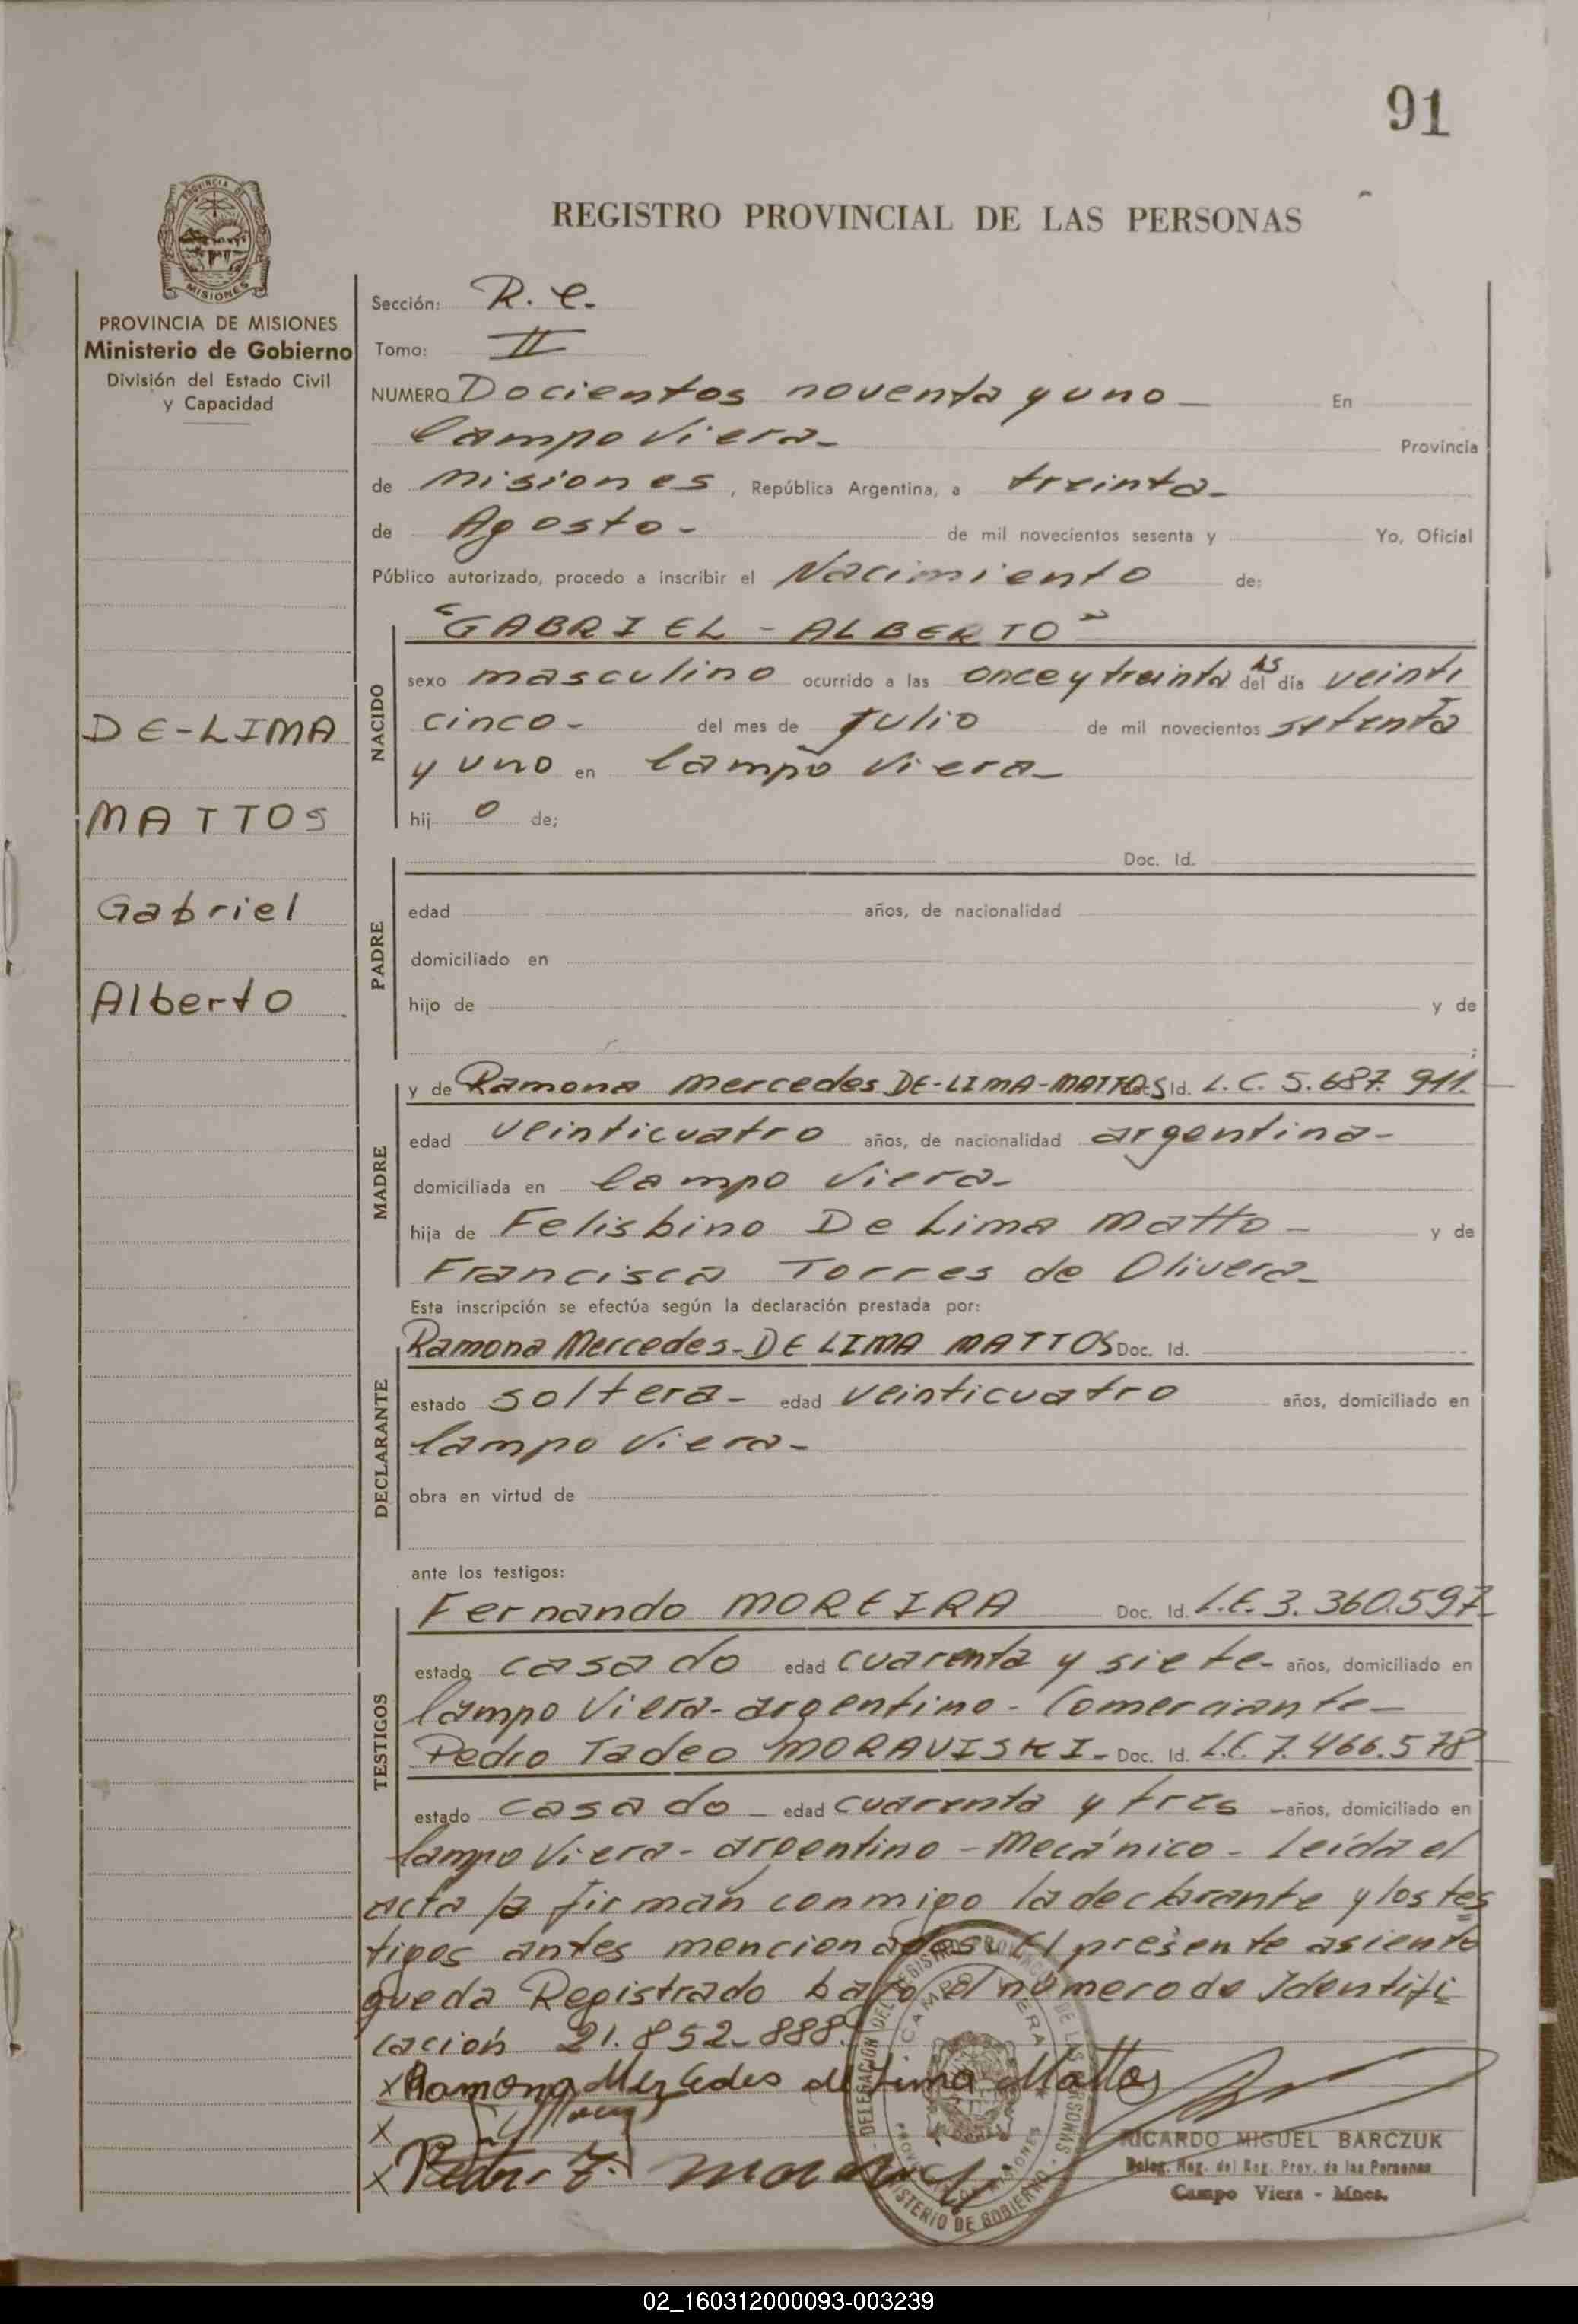 91
REGISTRO PROVINCIAL DE LAS PERSONAS
PROVINCIA DE
MISIONES
PROVINCIA DE MISIONES
Ministerio de Gobierno
División del Estado Civil
y Capacidad
DE-LIMA
MATTOS
Gabriel
Alberto
Sección: R. C.
Tomo: II
NUMERO Docientos noventa y uno - En
Campo Viera - Provincia
de Misiones, República Argentina, a treinta -
de Agosto - de mil novecientos sesenta y Yo, Oficial
Público autorizado, procedo a inscribir el Nacimiento de:
NACIDO
"GABRIEL - ALBERTO"
sexo masculino ocurrido a las once y treinta hs del día veinti
cinco - del mes de Julio de mil novecientos setenta
y uno en Campo Viera -
hij o de;
PADRE
Doc. Id.
edad años, de nacionalidad
domiciliado en
hijo de y de
;
MADRE
y de Ramona Mercedes DE-LIMA-MATTOS Id. L.C. 5.687.911.
edad veinticuatro años, de nacionalidad argentina -
domiciliada en Campo Viera -
hija de Felisbino De Lima Matto - y de
Francisca Torres de Olivera -
Esta inscripción se efectúa según la declaración prestada por:
DECLARANTE
Ramona Mercedes - DE LIMA MATTOS Doc. Id.
estado soltera - edad veinticuatro años, domiciliado en
Campo Viera -
obra en virtud de
ante los testigos:
TESTIGOS
Fernando MOREIRA Doc. Id. L.E. 3.360.597 -
estado casado edad cuarenta y siete - años, domiciliado en
Campo Viera - argentino - Comerciante -
Pedro Tadeo MORAVISKI - Doc. Id. L.E. 7.466.578
estado casado - edad cuarenta y tres - años, domiciliado en
Campo Viera - argentino - Mecánico - Leída el
acta la firman conmigo la declarante y los tes
tigos antes mencionados El presente asiento
queda Registrado bajo el número de Identifi
cación 21.852.888
x Ramona Mercedes de Lima Mattos
x
x Pedro T.
DELEGACION DEL REGISTRO PROVINCIAL DE LAS PERSONAS
CAMPO VIERA
PROVINCIA DE MISIONES
MINISTERIO DE GOBIERNO
RICARDO MIGUEL BARCZUK
Deleg. Reg. del Reg. Prov. de las Personas
Campo Viera - Mnes.
02_160312000093-003239